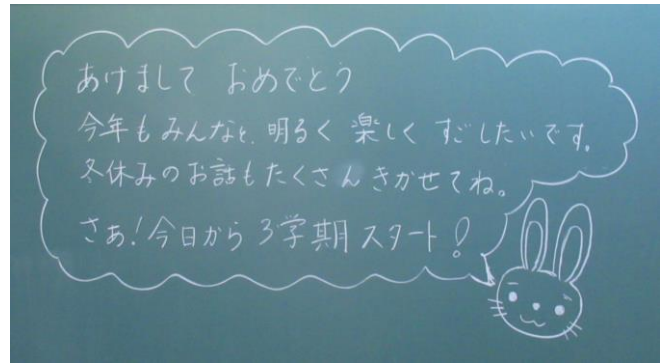 あけまして おめでとう
今年もみんなと、明るく 楽しく すごしたいです。
冬休みのお話もたくさんきかせてね。
さぁ!今日から 3学期 スタート!